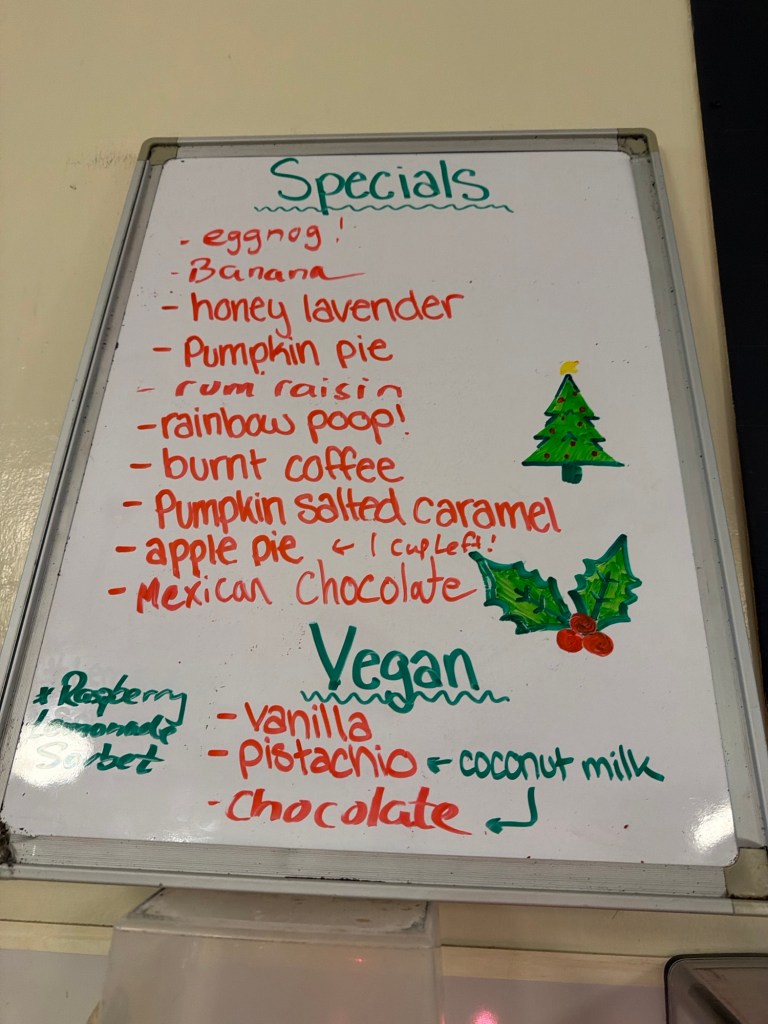 Specials
- eggnog!
- Banana
- honey lavender
- Pumpkin pie
- rum raisin
- rainbow poop!
- burnt coffee
- Pumpkin salted caramel
- apple pie ← 1 cup Left!
- Mexican Chocolate
Vegan
* Raspberry
Lemonade
Sorbet
- Vanilla
- Pistachio ← coconut milk
- Chocolate ↵